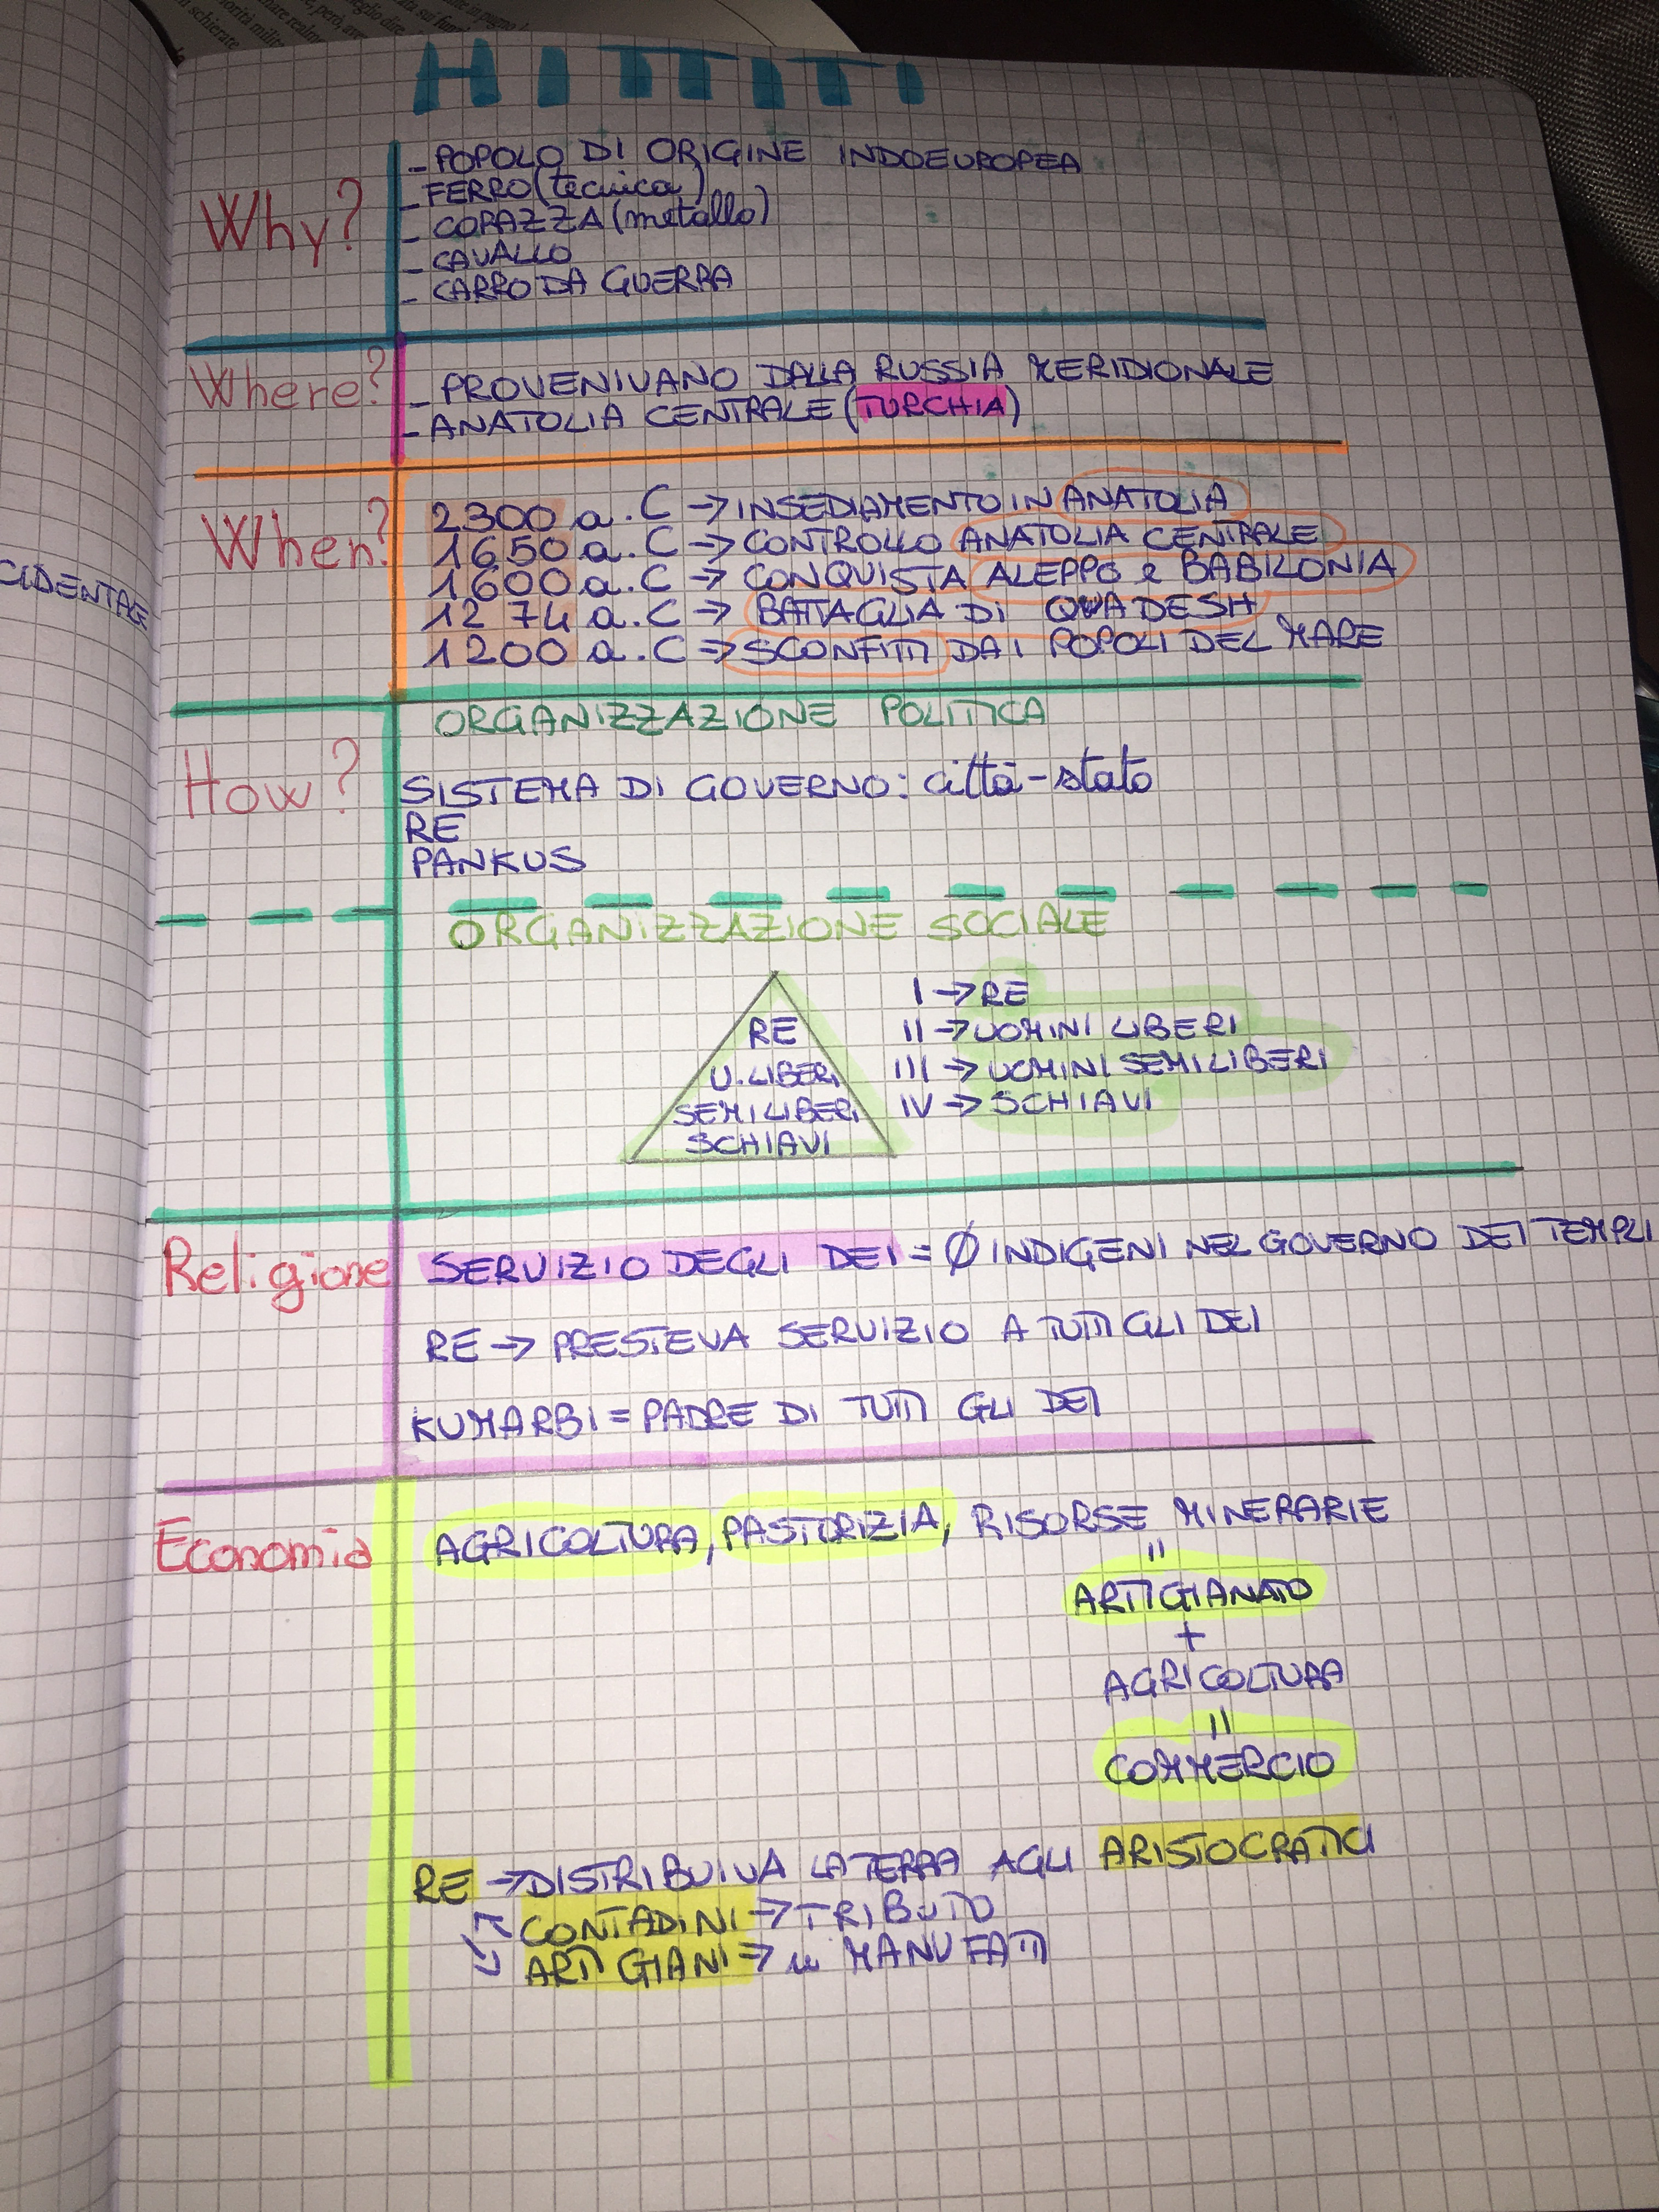 HITTITI
Why?
- POPOLO DI ORIGINE INDOEUROPEA
- FERRO (tecnica)
- CORAZZA (metallo)
- CAVALLO
- CARRO DA GUERRA
Where?
- PROVENIVANO DALLA RUSSIA MERIDIONALE
- ANATOLIA CENTRALE (TURCHIA)
When?
2300 a.C → INSEDIAMENTO IN ANATOLIA
1650 a.C → CONTROLLO ANATOLIA CENTRALE
1600 a.C → CONQUISTA ALEPPO e BABILONIA
1274 a.C → BATTAGLIA DI QUADESH
1200 a.C → SCONFITTI DAI POPOLI DEL MARE
CIDENTAE
How?
ORGANIZZAZIONE POLITICA
SISTEMA DI GOVERNO: città-stato
RE
PANKUS
ORGANIZZAZIONE SOCIALE
RE
U. LIBERI
SEMILIBERI
SCHIAVI
I → RE
II → UOMINI LIBERI
III → UOMINI SEMILIBERI
IV → SCHIAVI
Religione
SERVIZIO DEGLI DEI = Ø INDIGENI NEL GOVERNO DEI TEMPLI
RE → PRESTEVA SERVIZIO A TUTTI GLI DEI
KUMARBI = PADRE DI TUTTI GLI DEI
Economia
AGRICOLTURA, PASTORIZIA, RISORSE MINERARIE
=
ARTIGIANATO
+
AGRICOLTURA
=
COMMERCIO
RE → DISTRIBUIVA LA TERRA AGLI ARISTOCRATICI
CONTADINI → TRIBUTO
ARTIGIANI → " MANUFATTI